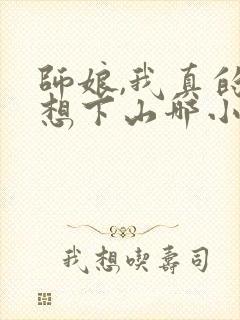 師娘,我真的
想下山啊小
我想喫壽司